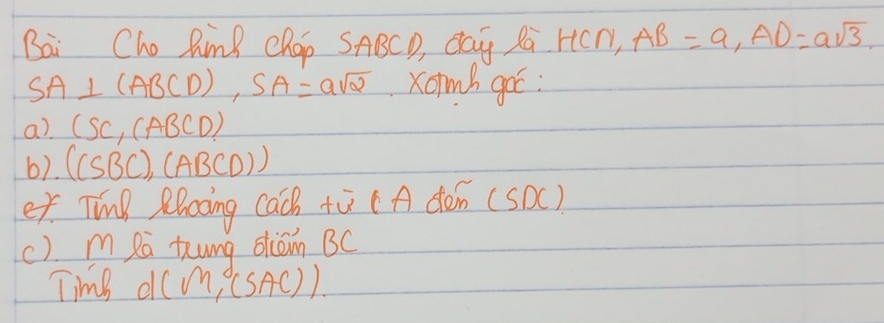 Bài Cho hình chóp SABCD, đáy là HCN, AB = a, AD = a√3.
SA ⊥ (ABCD), SA = a√2. Xđịnh góc:
a). (SC, (ABCD)
b). ((SBC), (ABCD))
Tính khoảng cách từ A đến (SDC).
c). M là trung điểm BC
Tính d(M, (SAC)).